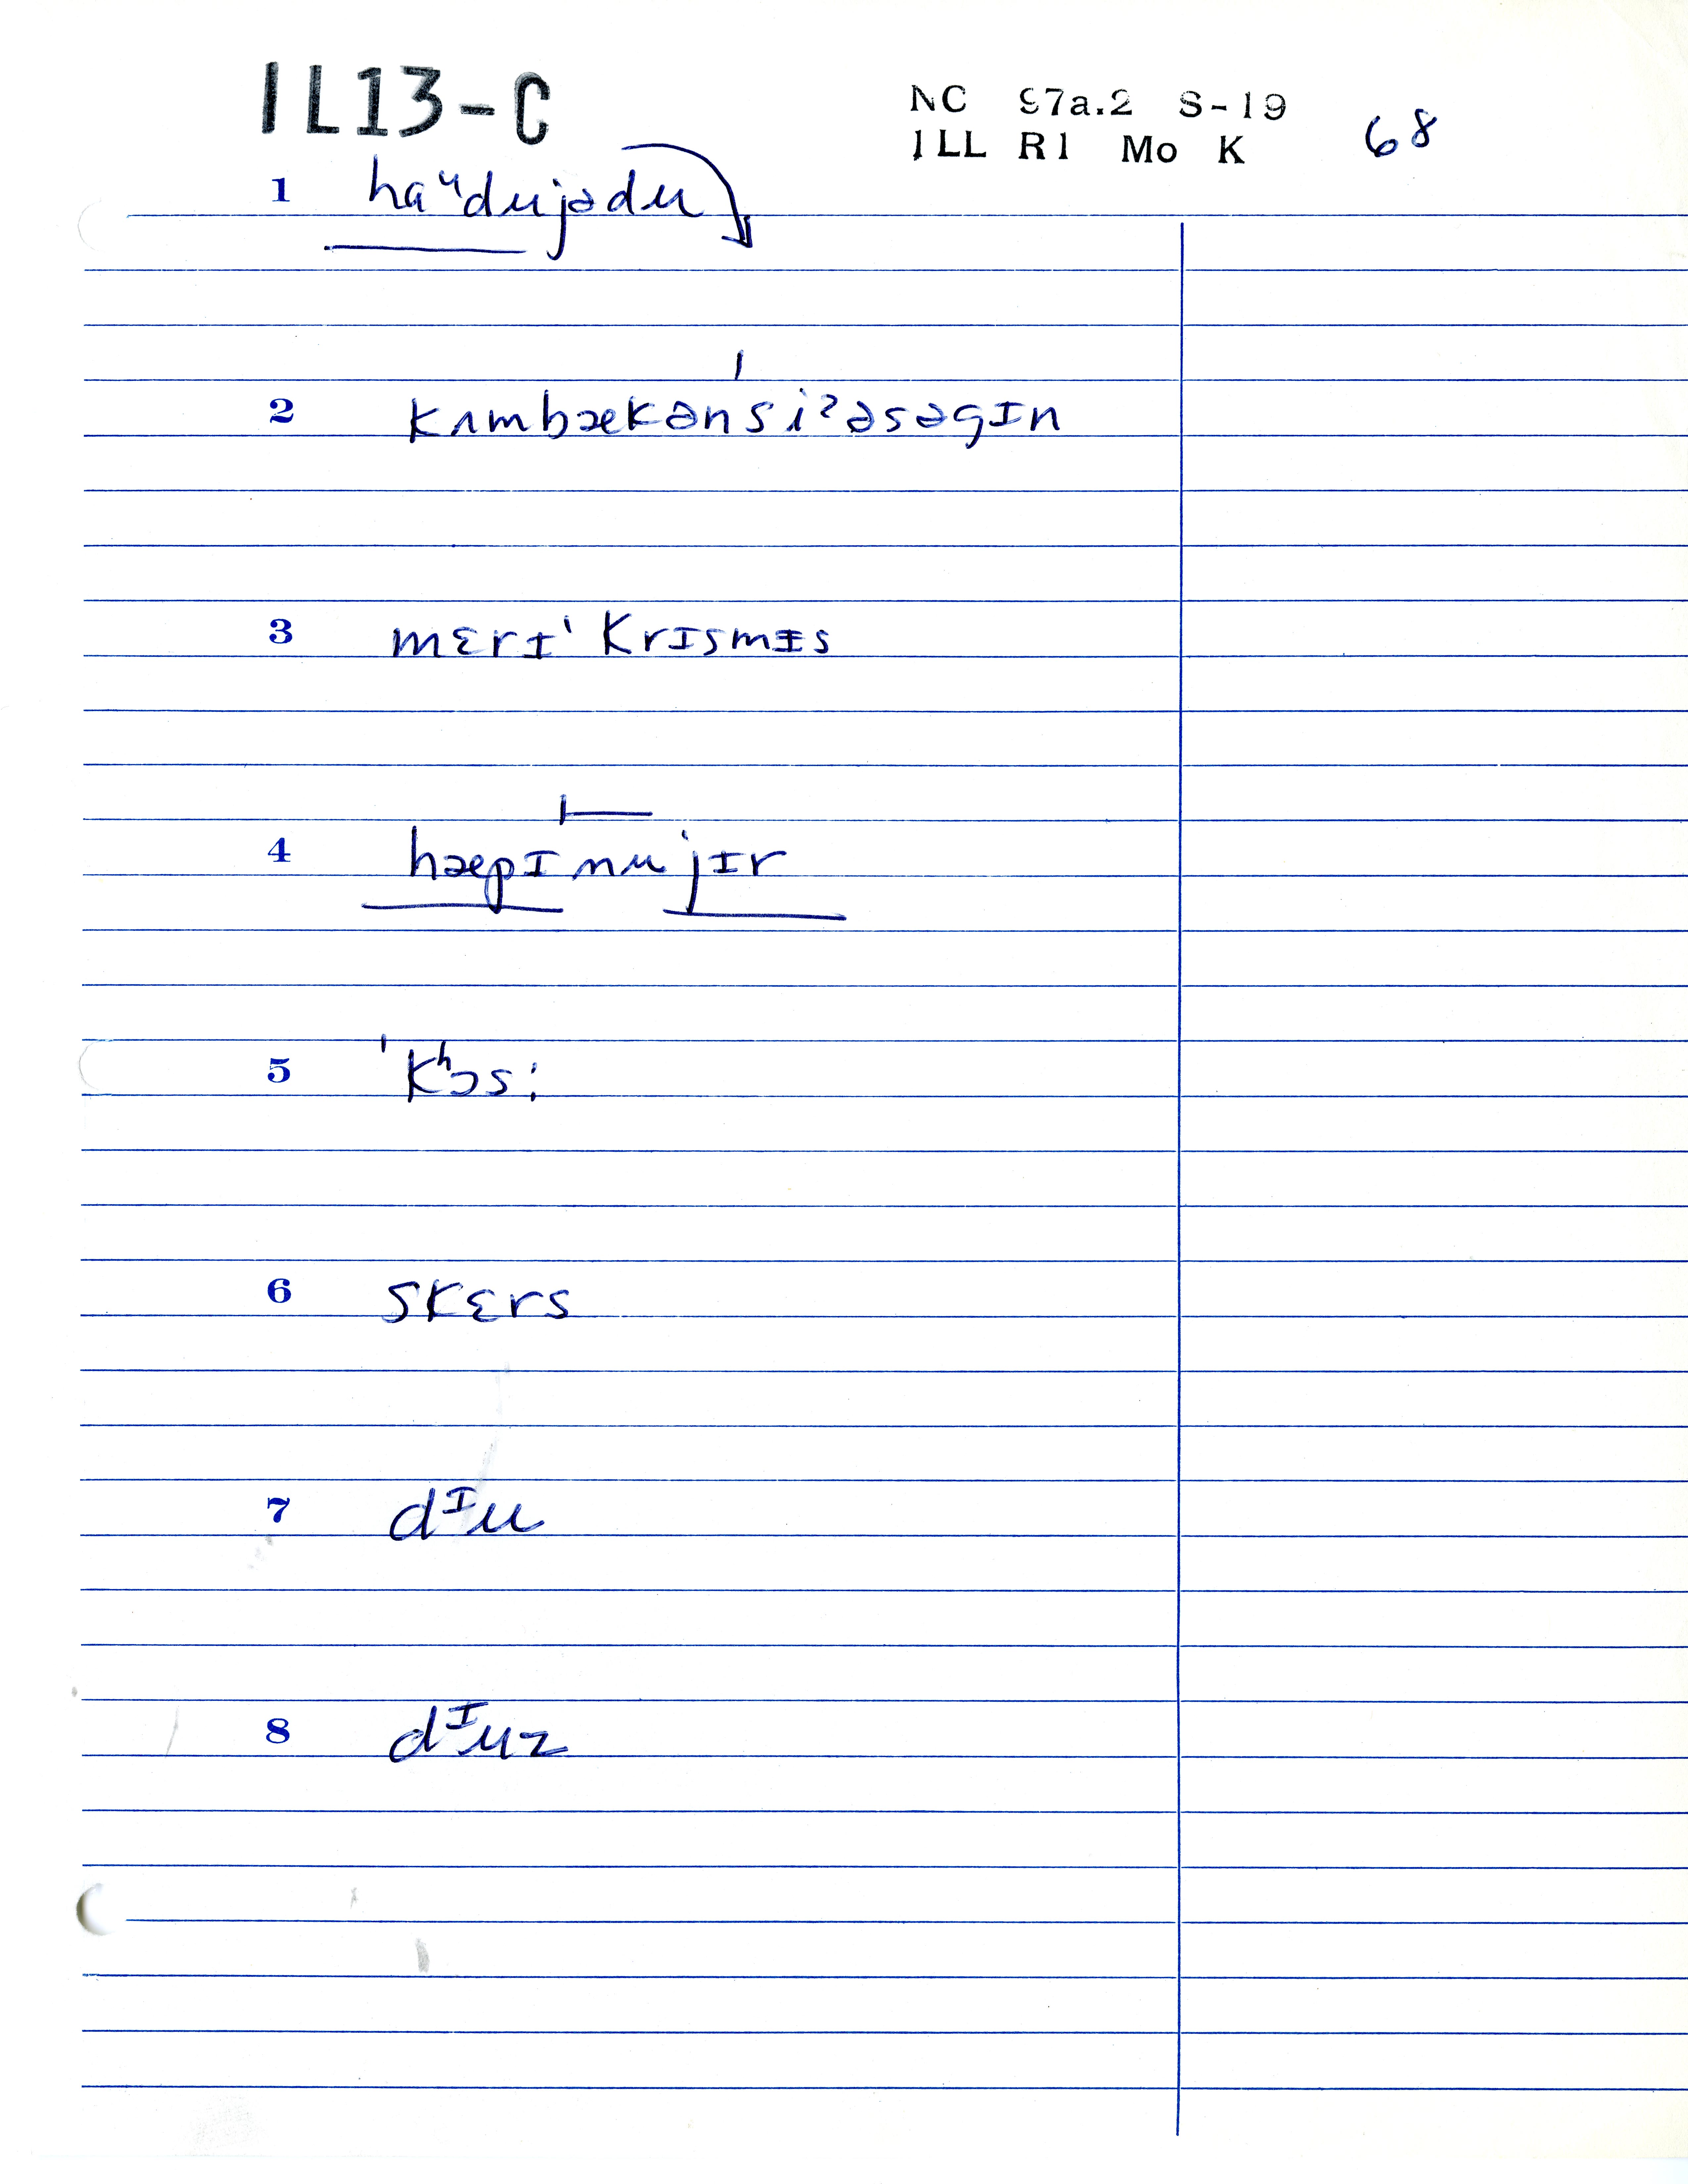 IL13-C
NC 97a.2 S-19
ILL RI Mo K 68
1 haᵘdujədu
2 kʌmbækənsiˀəsəgɪn
3 mɛrɪˈkrɪsmɪs
4 hæpɪnujɪr
5 ˈkʰɔsː
6 skɛrs
7 dᶦu
8 dᶦuz